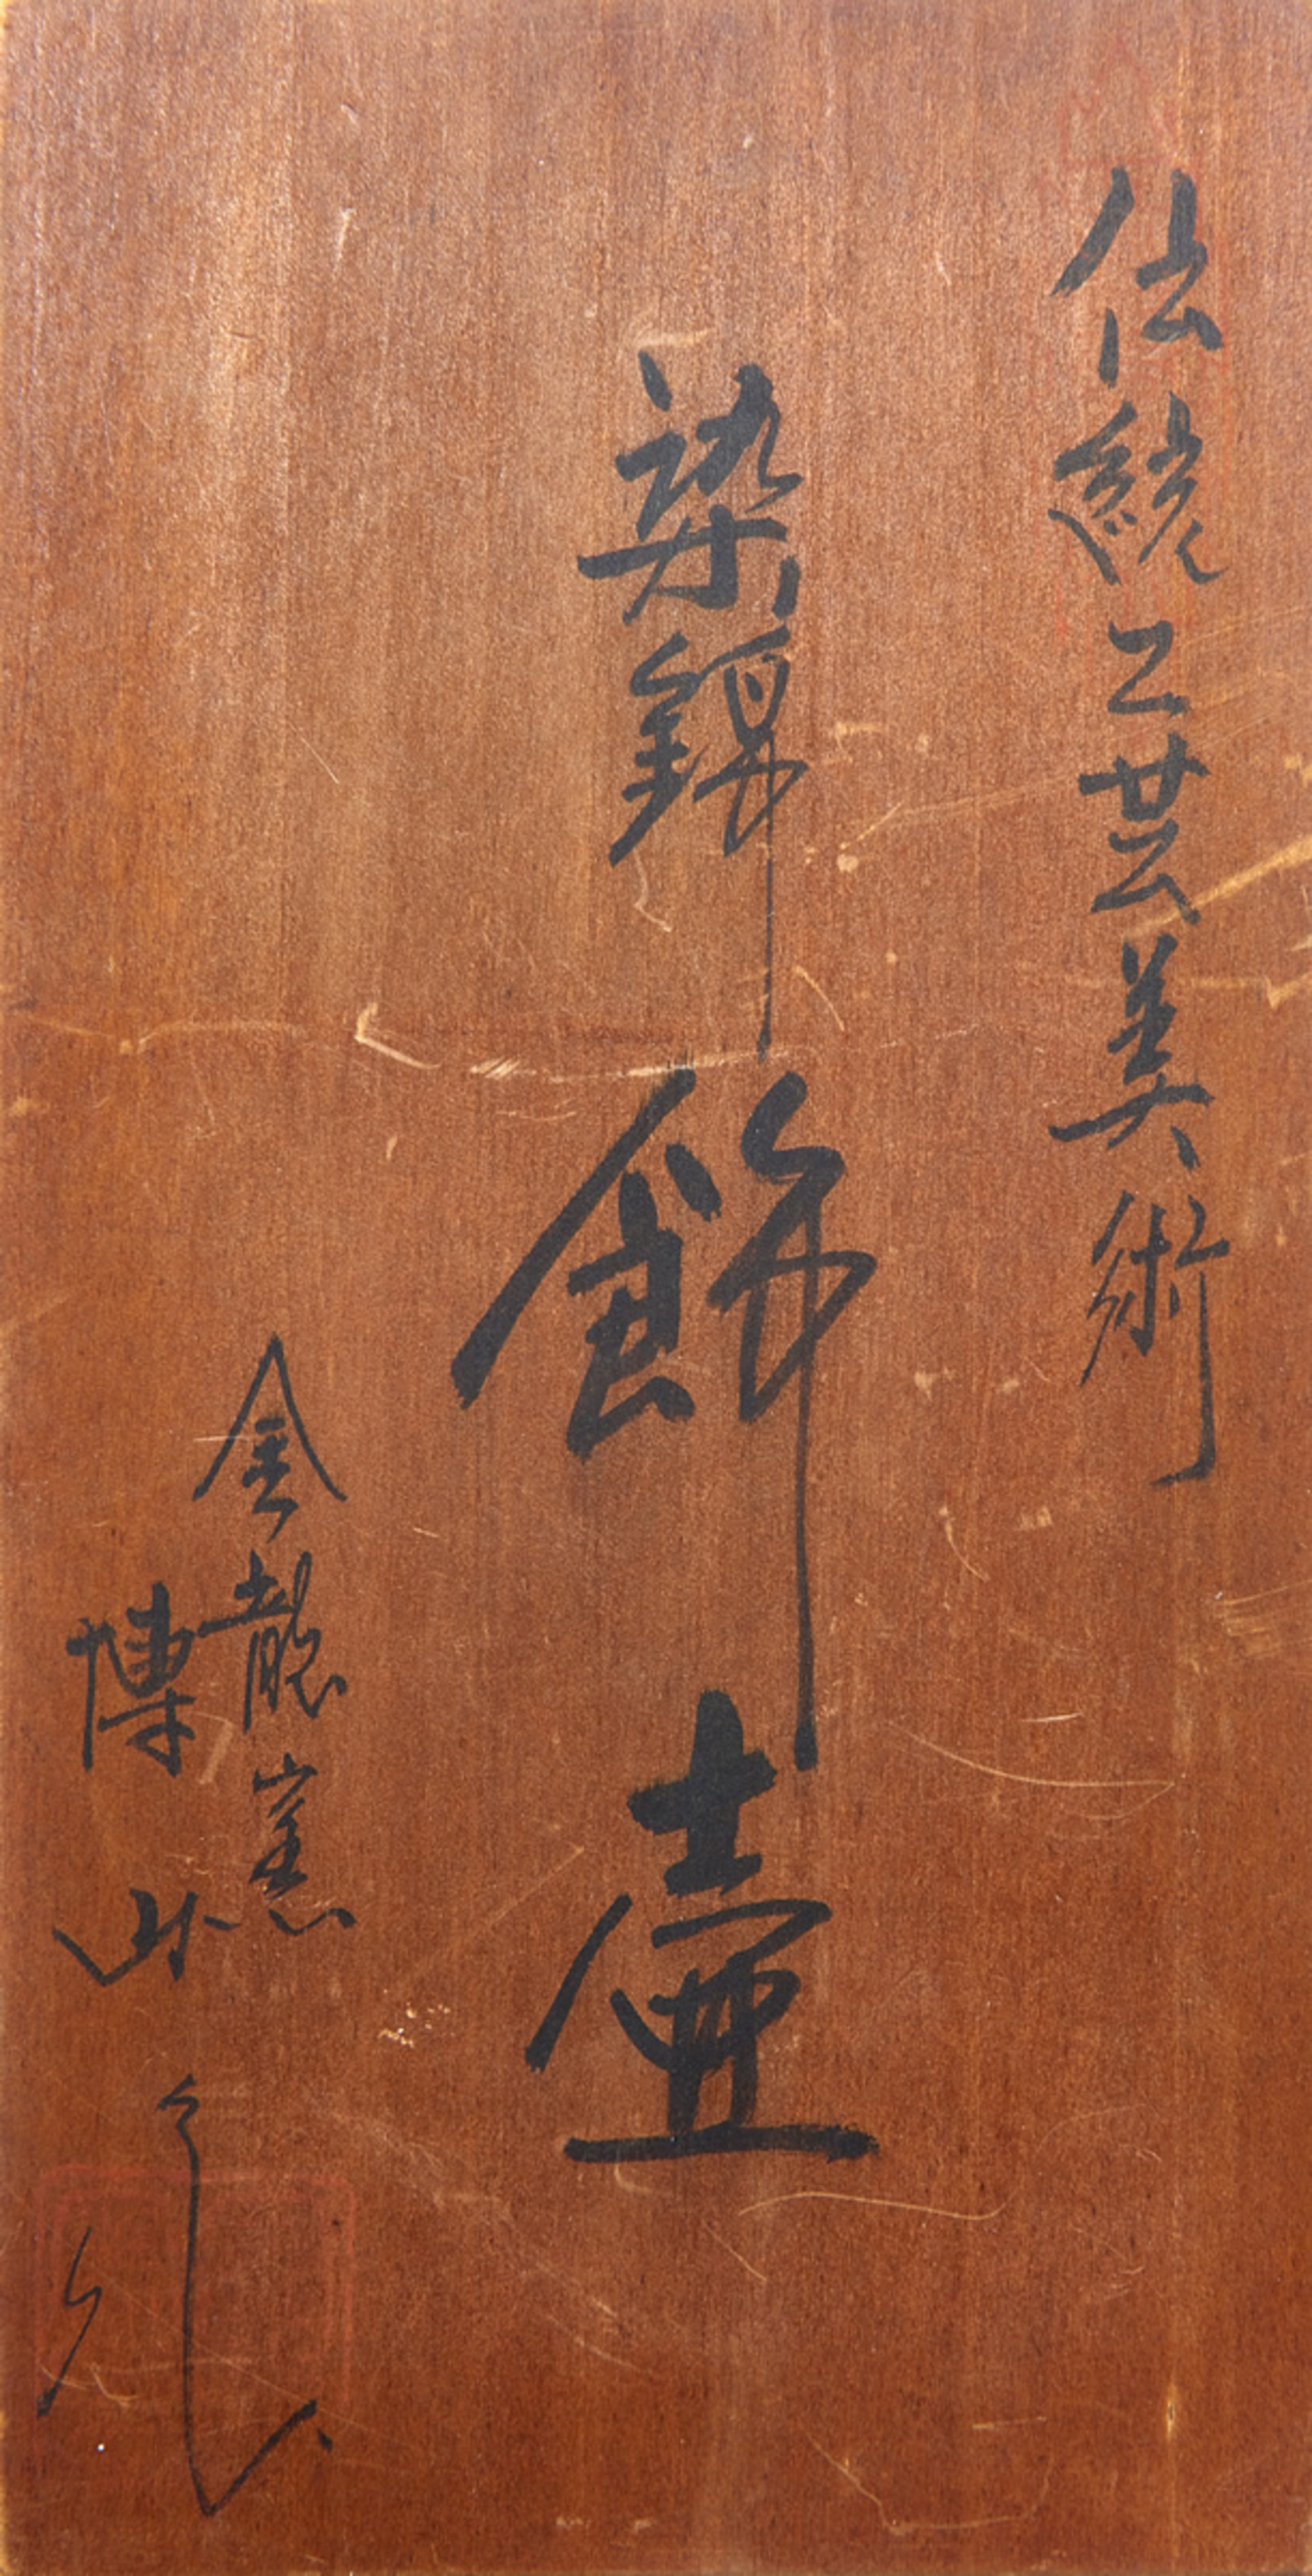 伝統工芸美術
染錦
飾壷
金龍窯
博山